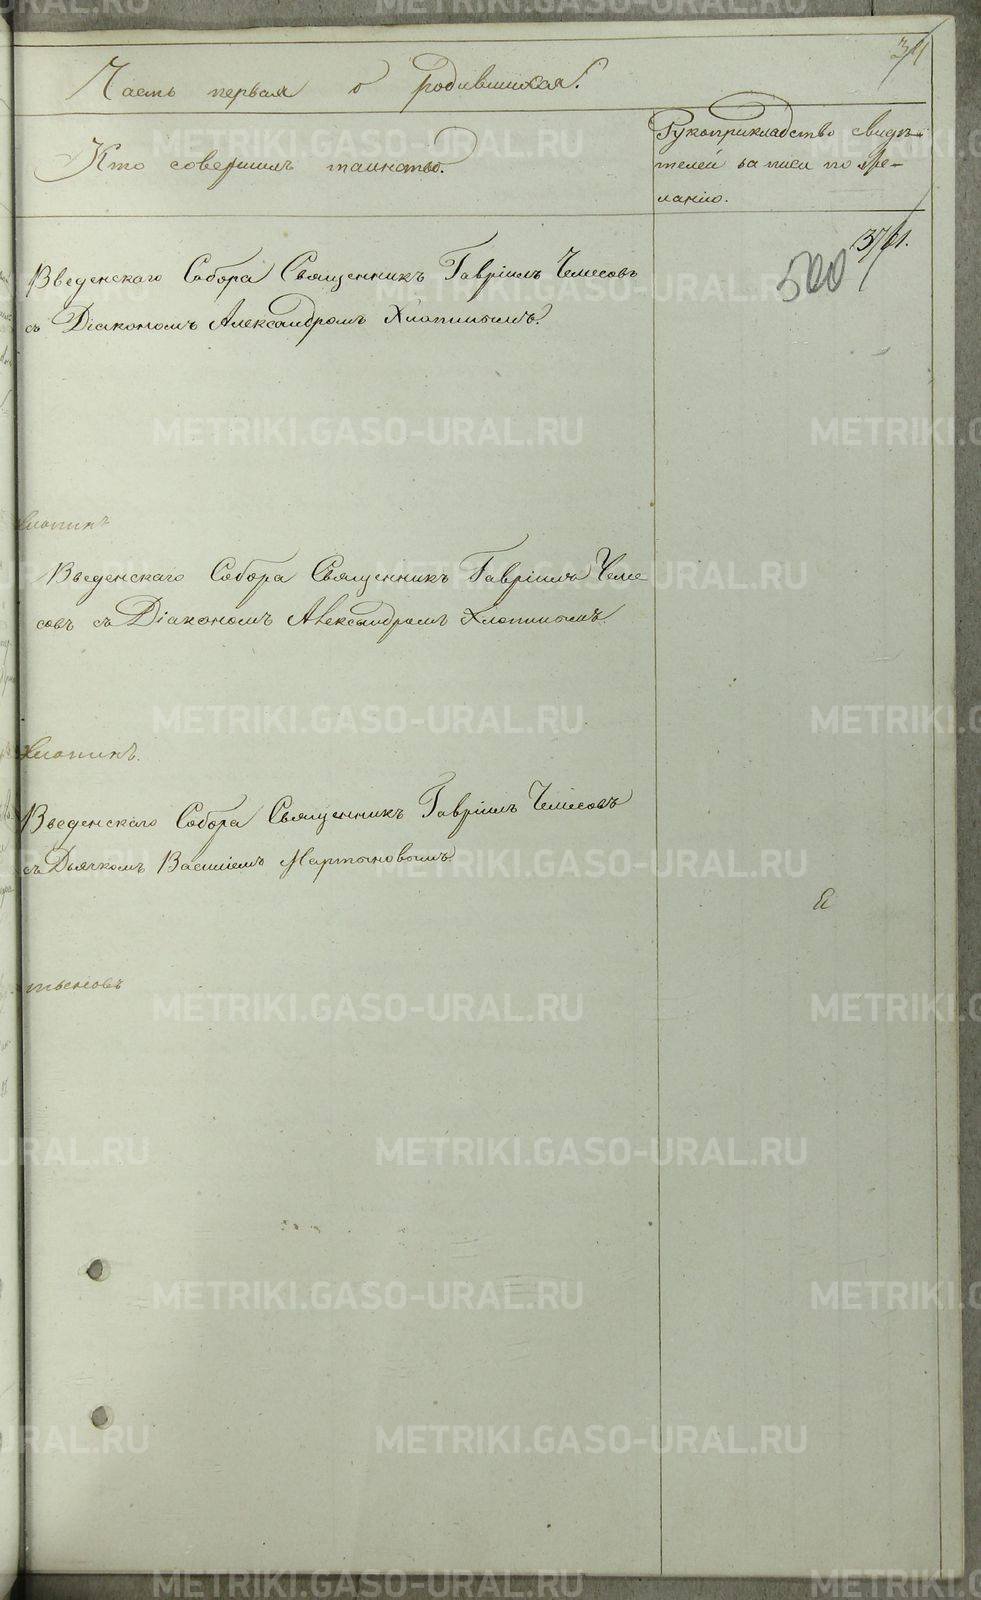 Часть первая о родившихся.
Кто совершилъ таинство.
Рукоприкладство свидѣ-
телей записи по же-
ланію.
500
Введенскаго Собора Священникъ Гавріилъ Чемесовъ
съ Діакономъ Александромъ Хлопинымъ.
Хлопинъ
Введенскаго Собора Священникъ Гавріилъ Чеме
совъ съ Діакономъ Александромъ Хлопинымъ
Хлопинъ.
Введенскаго Собора Священникъ Гавріилъ Чемесовъ
съ Дьячкомъ Васильемъ Мартыновымъ.
METRIKI.GASO-URAL.RU